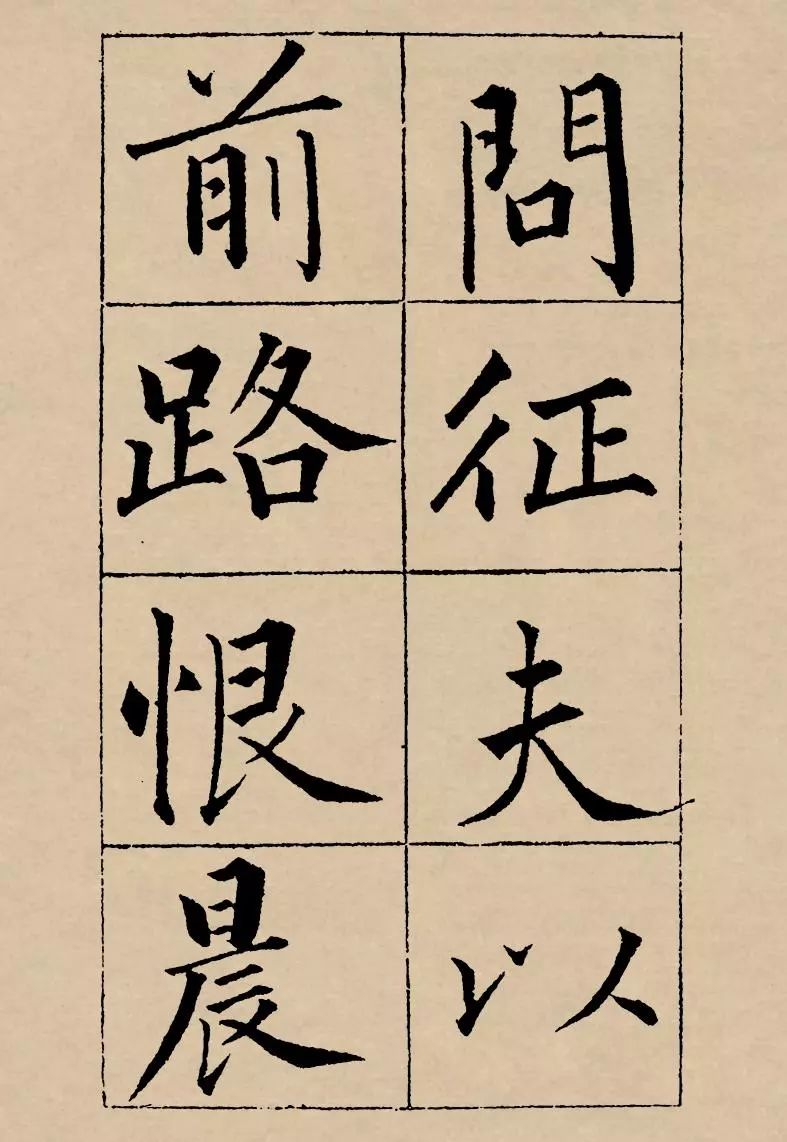 問征夫以
前路恨晨